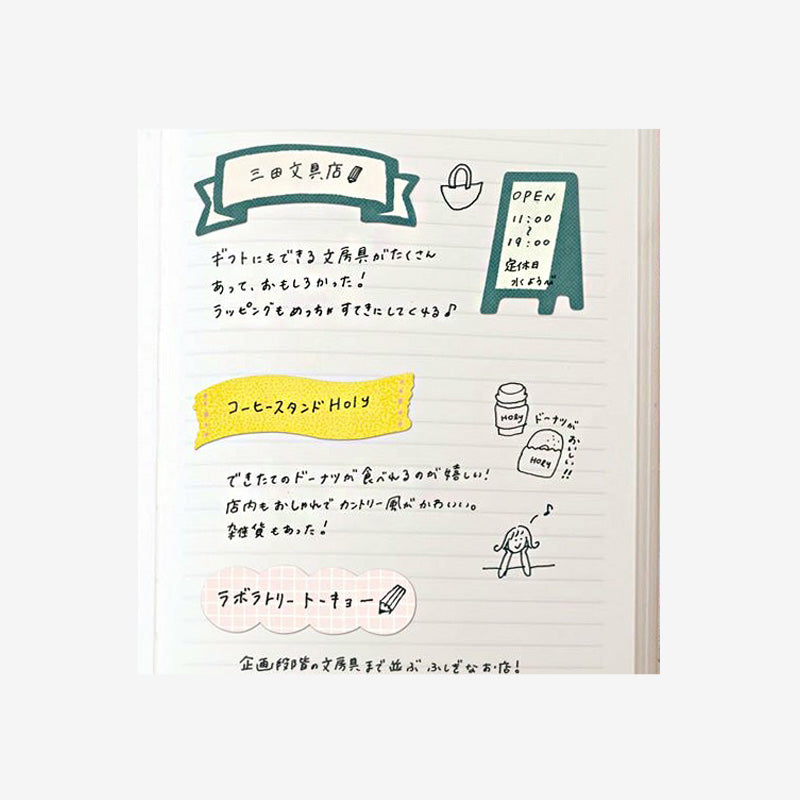 三田文具店
OPEN
11:00
~
19:00
定休日
水ようび
ギフトにもできる文房具がたくさん
あって、おもしろかった!
ラッピングもめっちゃすてきにしてくれる♪
コーヒースタンドHoly
HOLY
ドーナツが
おいしい!!
HOLY
できたてのドーナツが食べれるのが嬉しい!
店内もおしゃれでカントリー風がかわいい。
雑貨もあった!
ラボラトリートーキョー
企画段階の文房具まで並ぶふしぎなお店!